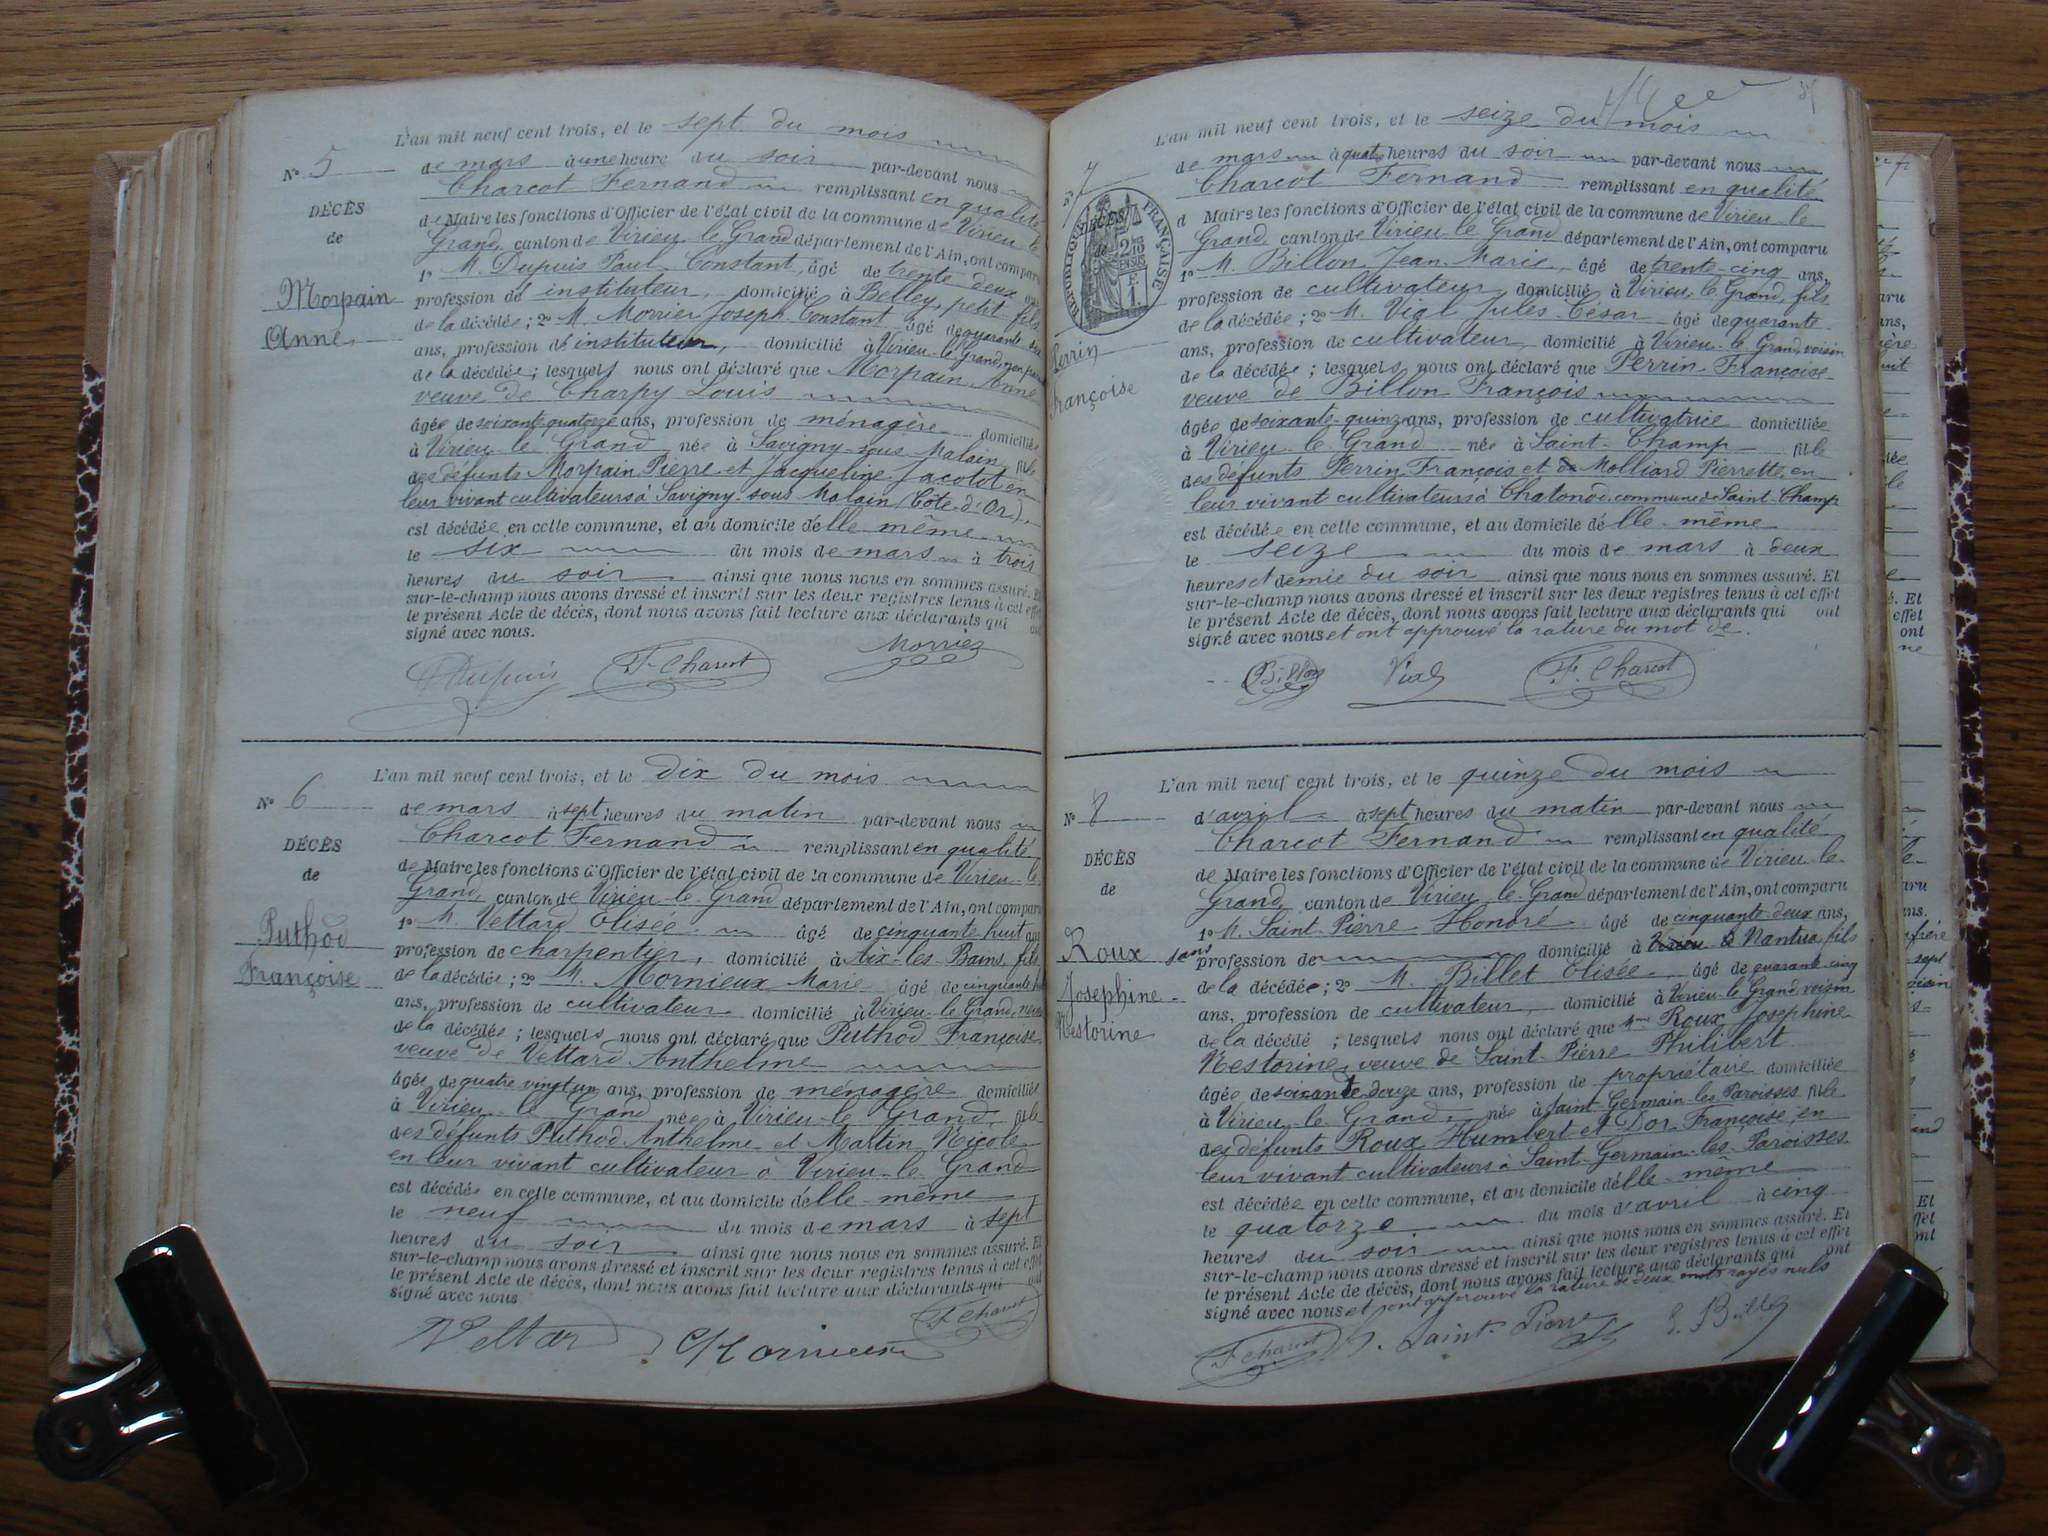 L'an mil neuf cent trois, et le sept du mois
N° 5
de mars à une heure du soir par-devant nous
Charcot Fernand remplissant en qualité
DÉCÈS
de Maire les fonctions d'Officier de l'état civil de la commune de Virieu-le-
de
Grand, canton de Virieu-le-Grand département de l'Ain, ont comparu
1° M. Dupuis Paul Constant, âgé de trente deux ans,
Morpain
profession d'instituteur, domicilié à Belley, petit fils
de la décédée; 2° M. Morrier Joseph Constant âgé de quarante
Anne
ans, profession d'instituteur, domicilié à Virieu-le-Grand, non parent
de la décédée; lesquels nous ont déclaré que Morpain Anne
veuve de Charpy Louis
âgée de soixante quatorze ans, profession de ménagère domiciliée
à Virieu-le-Grand née à Savigny-sous-Malain, fille
des défunts Morpain Pierre et Jacqueline Jacotot en
leur vivant cultivateurs à Savigny-sous-Malain (Côte-d'Or),
est décédée en cette commune, et au domicile d'elle-même
le six du mois de mars à trois
heures du soir ainsi que nous nous en sommes assuré. Et
sur-le-champ nous avons dressé et inscrit sur les deux registres tenus à cet effet
le présent Acte de décès, dont nous avons fait lecture aux déclarants qui ont
signé avec nous.
Dupuis F. Charcot Morriez
L'an mil neuf cent trois, et le dix du mois
N° 6
de mars à sept heures du matin par-devant nous
Charcot Fernand remplissant en qualité
DÉCÈS
de Maire les fonctions d'Officier de l'état civil de la commune de Virieu-le-
de
Grand, canton de Virieu-le-Grand département de l'Ain, ont comparu
1° M. Vettard Elisée âgé de cinquante huit ans
Puthod
profession de charpentier, domicilié à Aix-les-Bains, fils
Françoise
de la décédée; 2° M. Mornieux Marie âgé de cinquante
ans, profession de cultivateur domicilié à Virieu-le-Grand, neveu
de la décédée; lesquels nous ont déclaré que Puthod Françoise
veuve de Vettard Anthelme
âgée de quatre vingt un ans, profession de ménagère domiciliée
à Virieu-le-Grand, née à Virieu-le-Grand, fille
des défunts Puthod Anthelme et Martin Nicole
en leur vivant cultivateur à Virieu-le-Grand
est décédée en cette commune, et au domicile d'elle-même
le neuf du mois de mars à sept
heures du soir ainsi que nous nous en sommes assuré. Et
sur-le-champ nous avons dressé et inscrit sur les deux registres tenus à cet effet
le présent Acte de décès, dont nous avons fait lecture aux déclarants qui ont
signé avec nous
F. Charcot
Vettard Mornieux
L'an mil neuf cent trois, et le seize du mois
N° 7
de mars à quatre heures du soir par-devant nous
Charcot Fernand remplissant en qualité
DÉCÈS
de
RÉPUBLIQUE FRANÇAISE
2/10 EN SUS
E.
1.
d Maire les fonctions d'Officier de l'état civil de la commune de Virieu-le-
Grand, canton de Virieu-le-Grand département de l'Ain, ont comparu
1° M. Billon Jean-Marie, âgé de trente-cinq ans,
profession de cultivateur, domicilié à Virieu-le-Grand, fils
de la décédée; 2° M. Vial Jules-César âgé de quarante
Perrin
ans, profession de cultivateur, domicilié à Virieu-le-Grand, voisin
de la décédée; lesquels nous ont déclaré que Perrin Françoise
Françoise
veuve de Billon François
âgée de soixante-quinze ans, profession de cultivatrice domiciliée
à Virieu-le-Grand née à Saint-Champ fille
des défunts Perrin François et de Molliard Pierrette, en
leur vivant cultivateurs à Chatonod, commune de Saint-Champ
est décédée en cette commune, et au domicile d'elle-même
le seize du mois de mars à deux
heures et demie du soir ainsi que nous nous en sommes assuré. Et
sur-le-champ nous avons dressé et inscrit sur les deux registres tenus à cet effet
le présent Acte de décès, dont nous avons fait lecture aux déclarants qui ont
signé avec nous et ont approuvé la rature du mot de.
Billon Vial F. Charcot
L'an mil neuf cent trois, et le quinze du mois
N° 8
d'avril à sept heures du matin par-devant nous
Charcot Fernand remplissant en qualité
DÉCÈS
de Maire les fonctions d'Officier de l'état civil de la commune de Virieu-le-
de
Grand, canton de Virieu-le-Grand département de l'Ain, ont comparu
1° M. Saint-Pierre Honoré âgé de cinquante-deux ans,
Roux
sans profession de domicilié à Virieu-le Nantua, fils
de la décédée; 2° M. Billet Elisée âgé de quarante-cinq
Josephine
ans, profession de cultivateur, domicilié à Virieu-le-Grand, voisin
Nestorine
de la décédé; lesquels nous ont déclaré que Mme Roux Josephine
Nestorine, veuve de Saint-Pierre Philibert
âgée de soixante douze ans, profession de propriétaire domiciliée
à Virieu-le-Grand, née à Saint-Germain-les-Paroisses fille
des défunts Roux Humbert et Dor Françoise, en
leur vivant cultivateurs à Saint-Germain-les-Paroisses.
est décédée en cette commune, et au domicile d'elle-même
le quatorze du mois d'avril à cinq
heures du soir ainsi que nous nous en sommes assuré. Et
sur-le-champ nous avons dressé et inscrit sur les deux registres tenus à cet effet
le présent Acte de décès, dont nous avons fait lecture aux déclarants qui ont
signé avec nous et ont approuvé la rature de deux mots rayés nuls
F. Charcot H. Saint-Pierre E. Billet